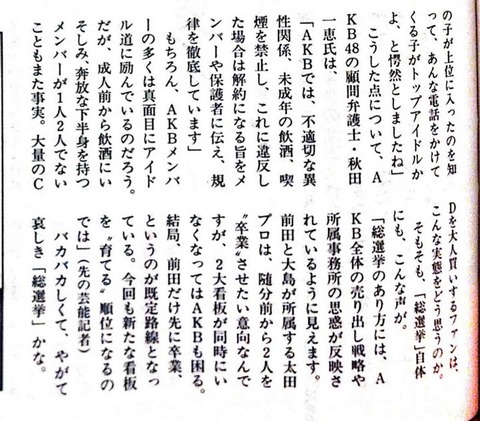 の子が上位に入ったのを知
って、あんな電話をかけて
くる子がトップアイドルか
よ、と愕然としましたね」
こうした点について、A
KB48の顧問弁護士・秋田
一恵氏は、
「AKBでは、不適切な異
性関係、未成年の飲酒、喫
煙を禁止し、これに違反し
た場合は解約になる旨をメ
ンバーや保護者に伝え、規
律を徹底しています」
もちろん、AKBメンバ
ーの多くは真面目にアイド
ル道に励んでいるのだろう。
だが、成人前から飲酒にい
そしみ、奔放な下半身を持つ
メンバーが1人2人でない
こともまた事実。大量のC
Dを大人買いするファンは、
こんな実態をどう思うのか。
そもそも、「総選挙」自体
にも、こんな声が。
「総選挙のあり方には、A
KB全体の売り出し戦略や
所属事務所の思惑が反映さ
れているように見えます。
前田と大島が所属する太田
プロは、随分前から2人を
〝卒業〟させたい意向なんで
すが、2大看板が同時にい
なくなってはAKBも困る。
結局、前田だけ先に卒業、
というのが既定路線となっ
ている。今回も新たな看板
を〝育てる〟順位になるの
では」(先の芸能記者)
バカバカしくて、やがて
哀しき「総選挙」かな。